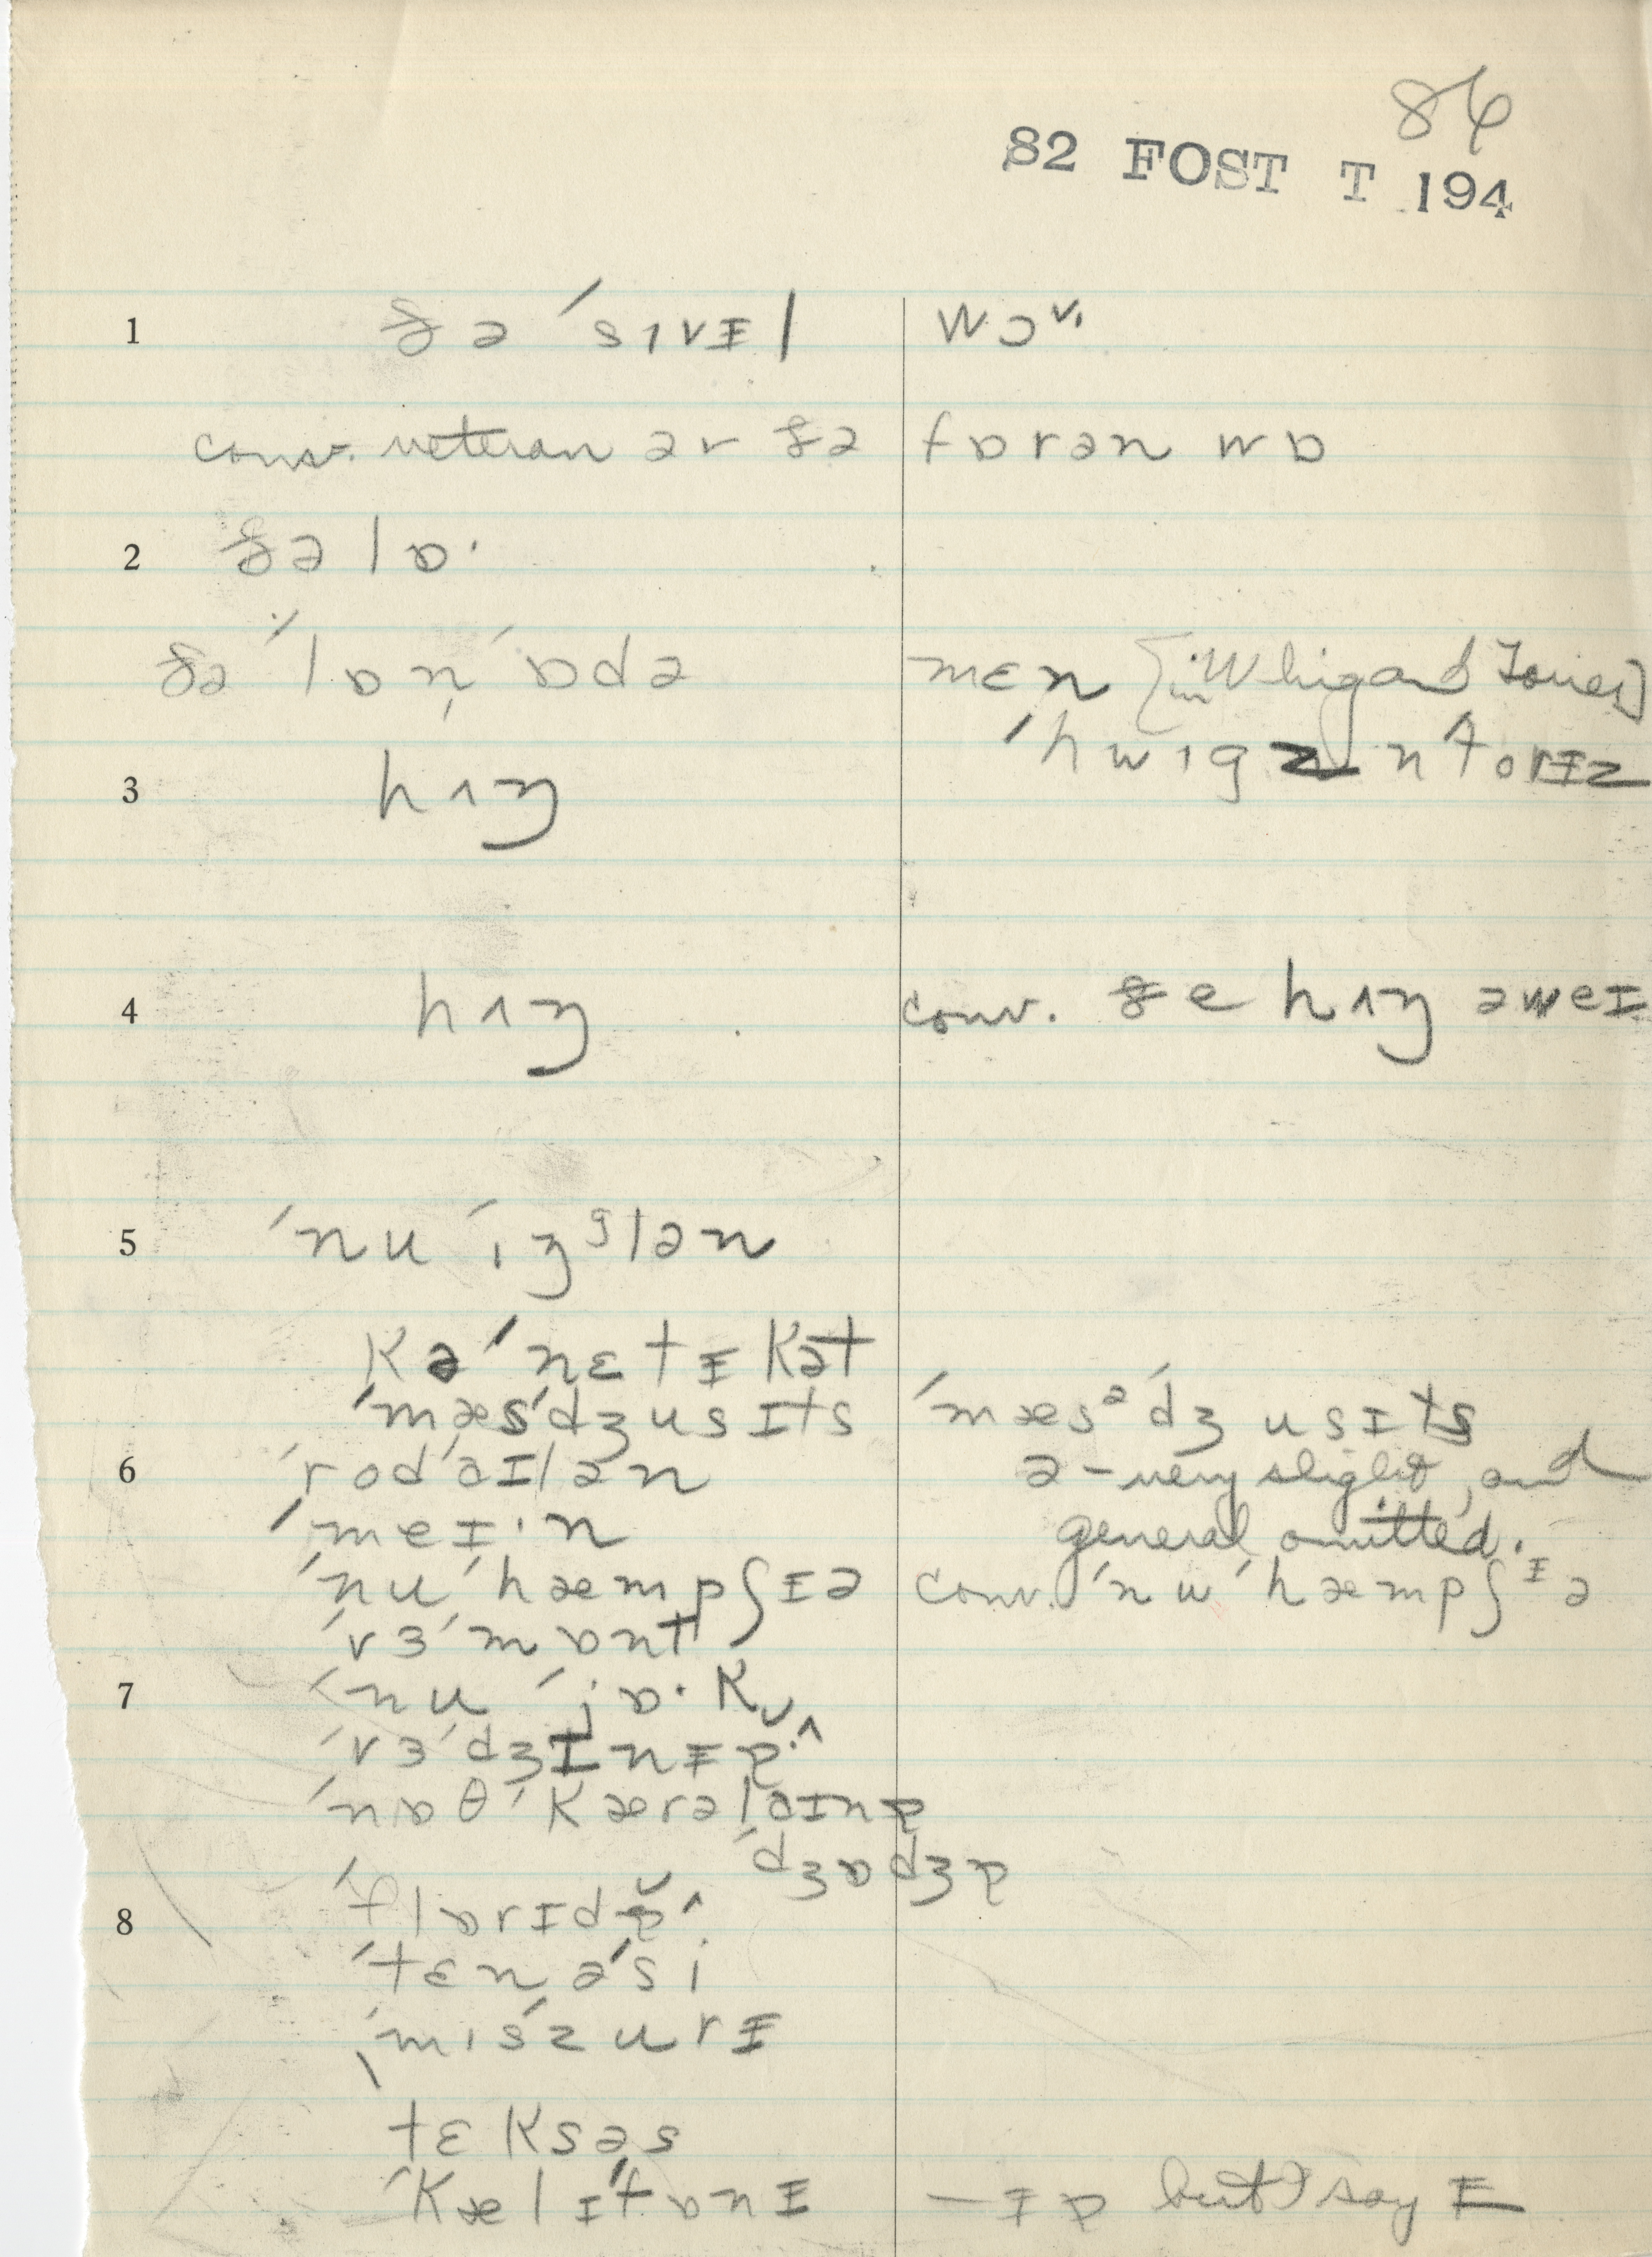 86
82 FOST T 194
1 ðə ˈsɪvᵻl wɔ
conv. veteran ər ðə fɒrən wɒ
2 ðə lɒ·
ðə ˈlɒ n̩ ˈɒdə mɛn [in Whig and Tories]
ˈhwɪgz n̩ torᵻz
3 hʌŋ
4 hʌŋ conv. ðe hʌŋ əweɪ
5 ˈnu ˈɪŋᵍlən
kəˈnɛtᵻkət
ˈmæsˈdʒusɪts ˈmæsᵊˈdʒusɪts
6 ˈrodˈaɪlən ə - very slight, and
ˈmeɪ·n general omitted.
ˈnuˈhæmpʃɪə conv. ˈnuˈhæmpʃᶦə
ˈvɜˈmɒnt
7 ˈnu ˈjɒ·k
ˈvɜˈdʒɪnᵻɐ
ˈnɒθ ˈkærəlaɪnɐ
ˈdʒɒdʒɐ
8 ˈflɒrɪdɐ
ˈtɛnəˈsi
ˌmɪˈszurᵻ
tɛksəs
ˈkælɪˈfɒnɪ —ᵻɐ but say ᵻ